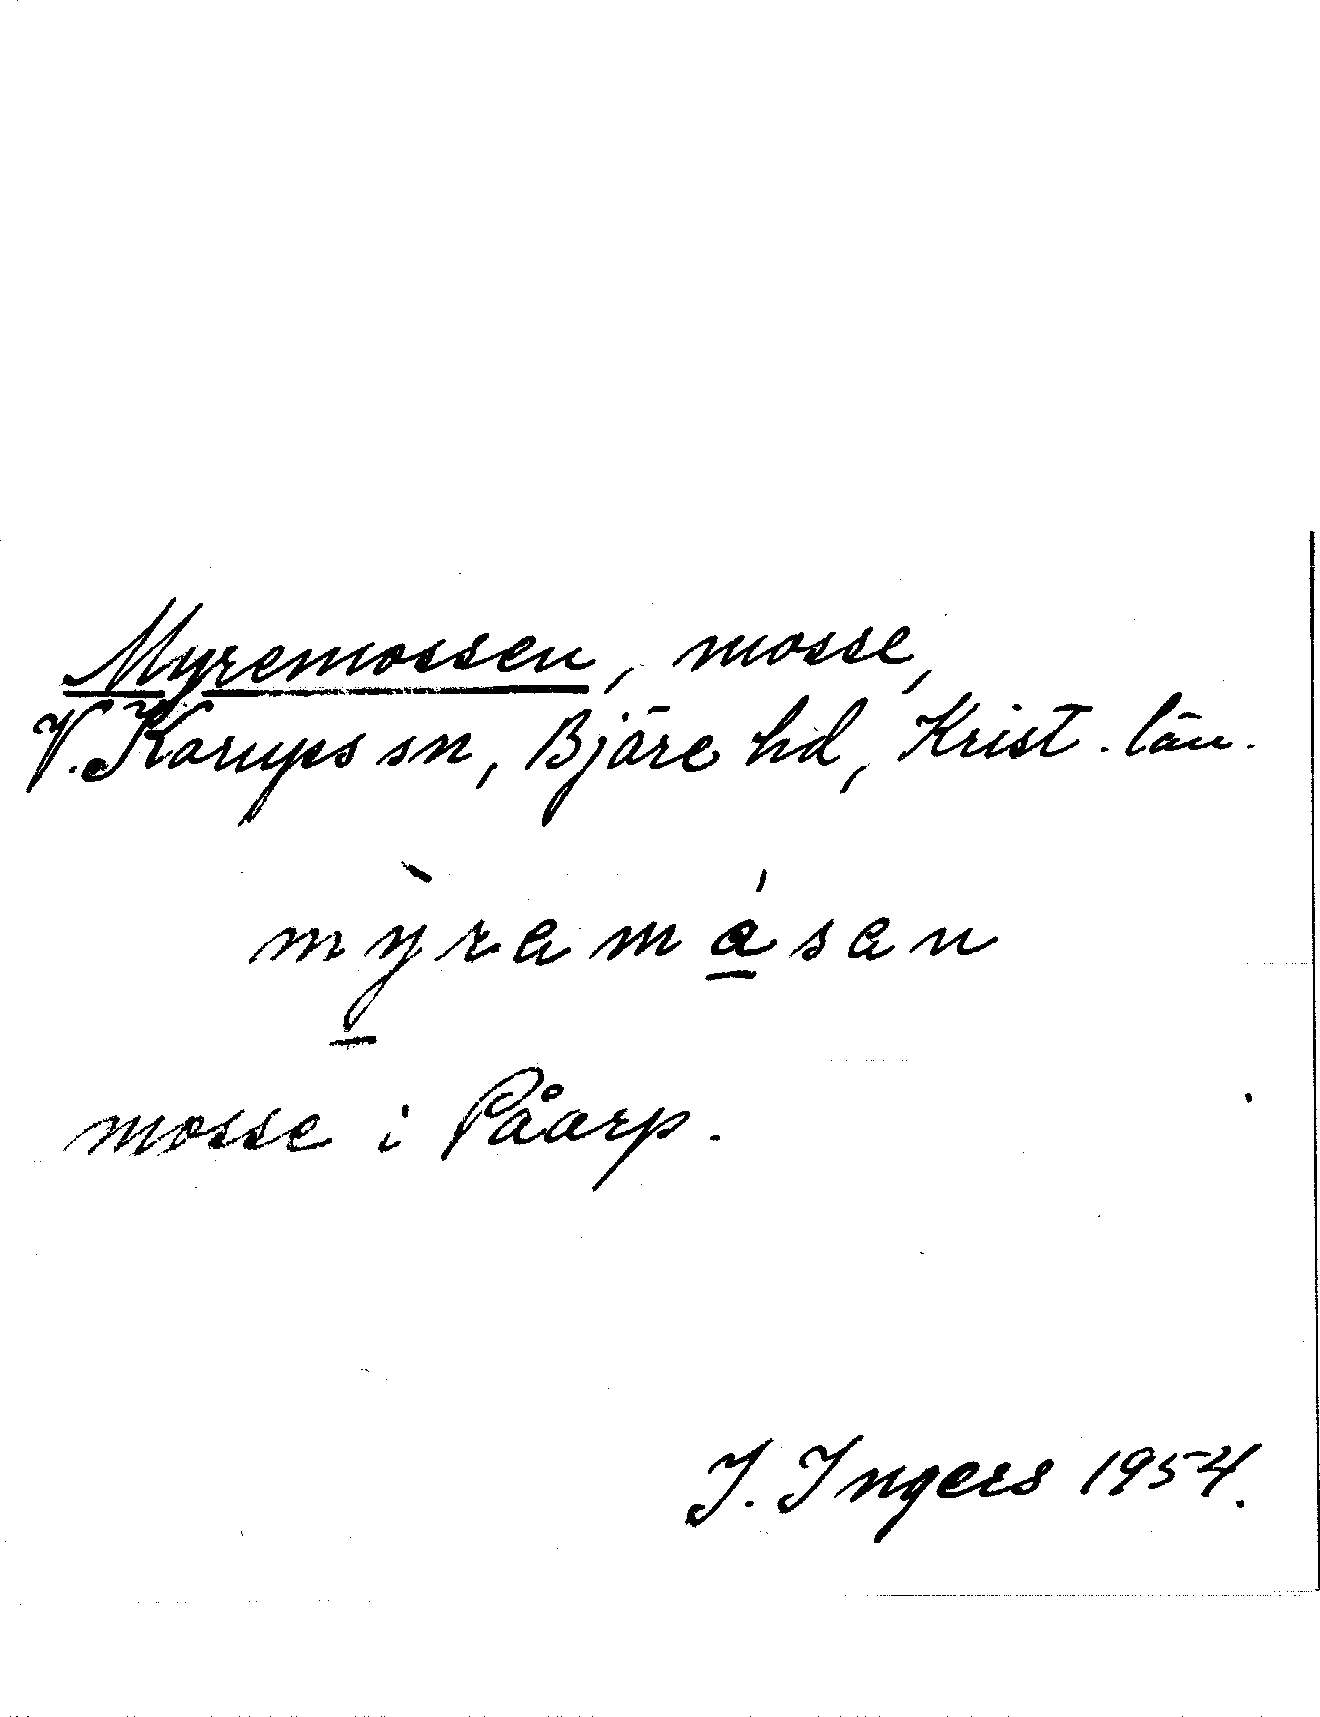 Myremossen, mosse,
V. Karups sn, Bjäre hd, Krist. län.
mỳramásan
mosse i Påarp.
I. Ingers 1954.